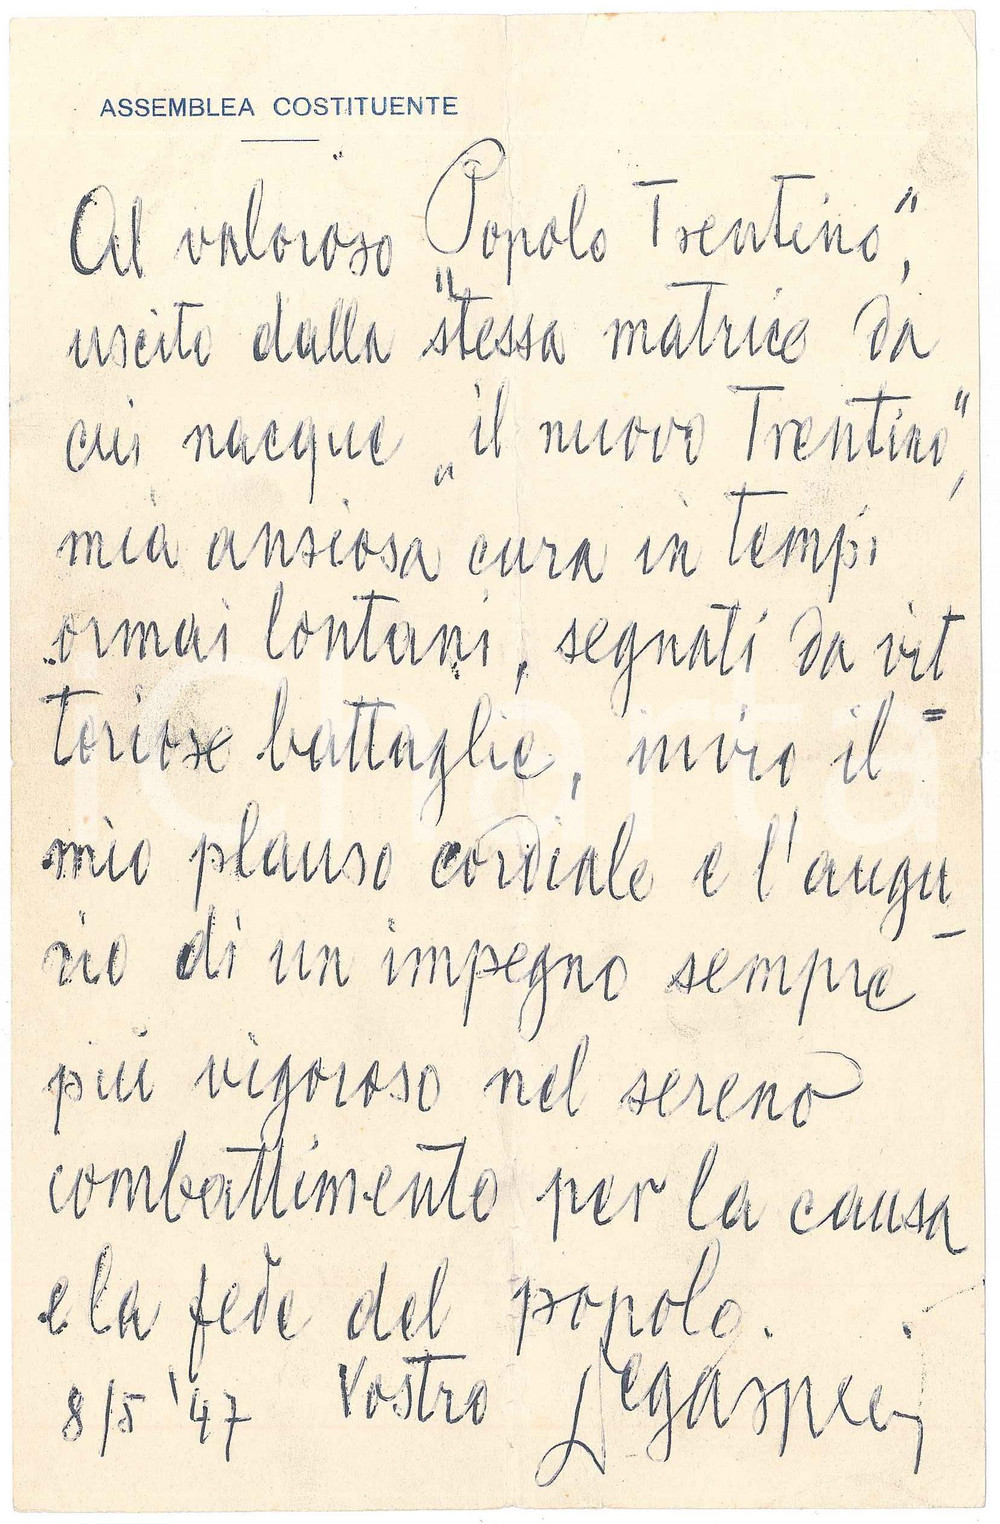 ASSEMBLEA COSTITUENTE
Al valoroso „Popolo Trentino",
uscito dalla stessa matrice da
cui nacque „il nuovo Trentino",
mia ansiosa cura in tempi
ormai lontani, segnati da vit=
toriose battaglie, invio il
mio plauso cordiale e l'augu-
rio di un impegno sempre
più vigoroso nel sereno
combattimento per la causa
e la fede del popolo.
8/5 '47 Vostro Degasperi